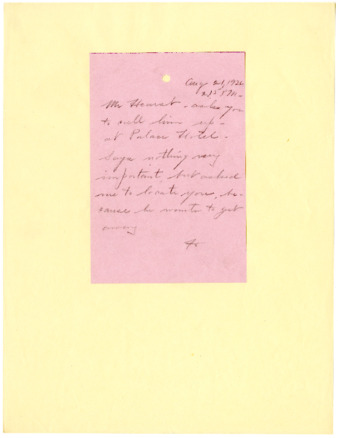 Aug 21, 1922
215 P.M.
Mr Hearst - asks you
to call him up -
at Palace Hotel.
Says nothing very
important, but asked
me to locate you, be-
cause he wants to get
away